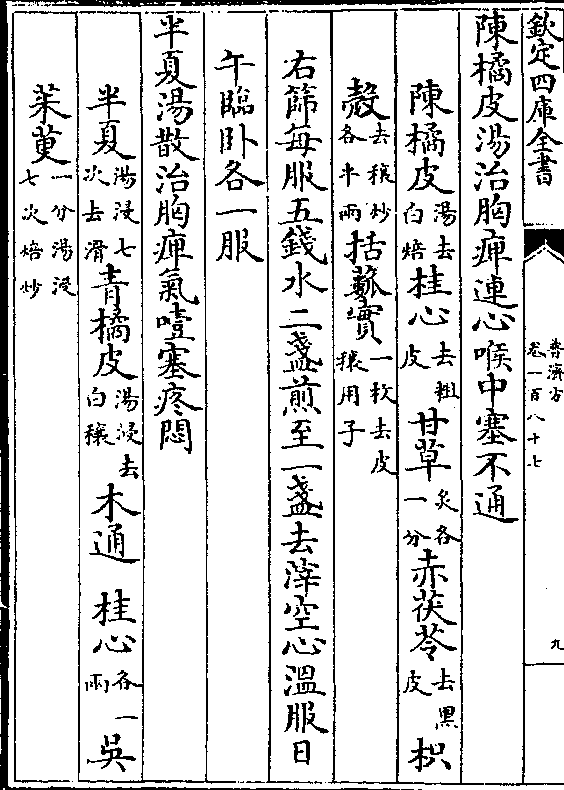 欽定四庫全書
普濟方
卷一百八十七
九
陳橘皮湯治胸痺連心喉中塞不通
陳橘皮湯去白焙桂心去粗皮甘草炙各一分赤茯苓去黑皮枳
殼去穰炒各半兩括蔞實一枚去皮穰用子
右篩每服五錢水二盞煎至一盞去滓空心溫服日
午臨卧各一服
半夏湯散治胸痺氣噎塞疼悶
半夏湯浸七次去滑青橘皮湯浸去白穰木通 桂心各一兩吳
茱萸一分湯浸七次焙炒